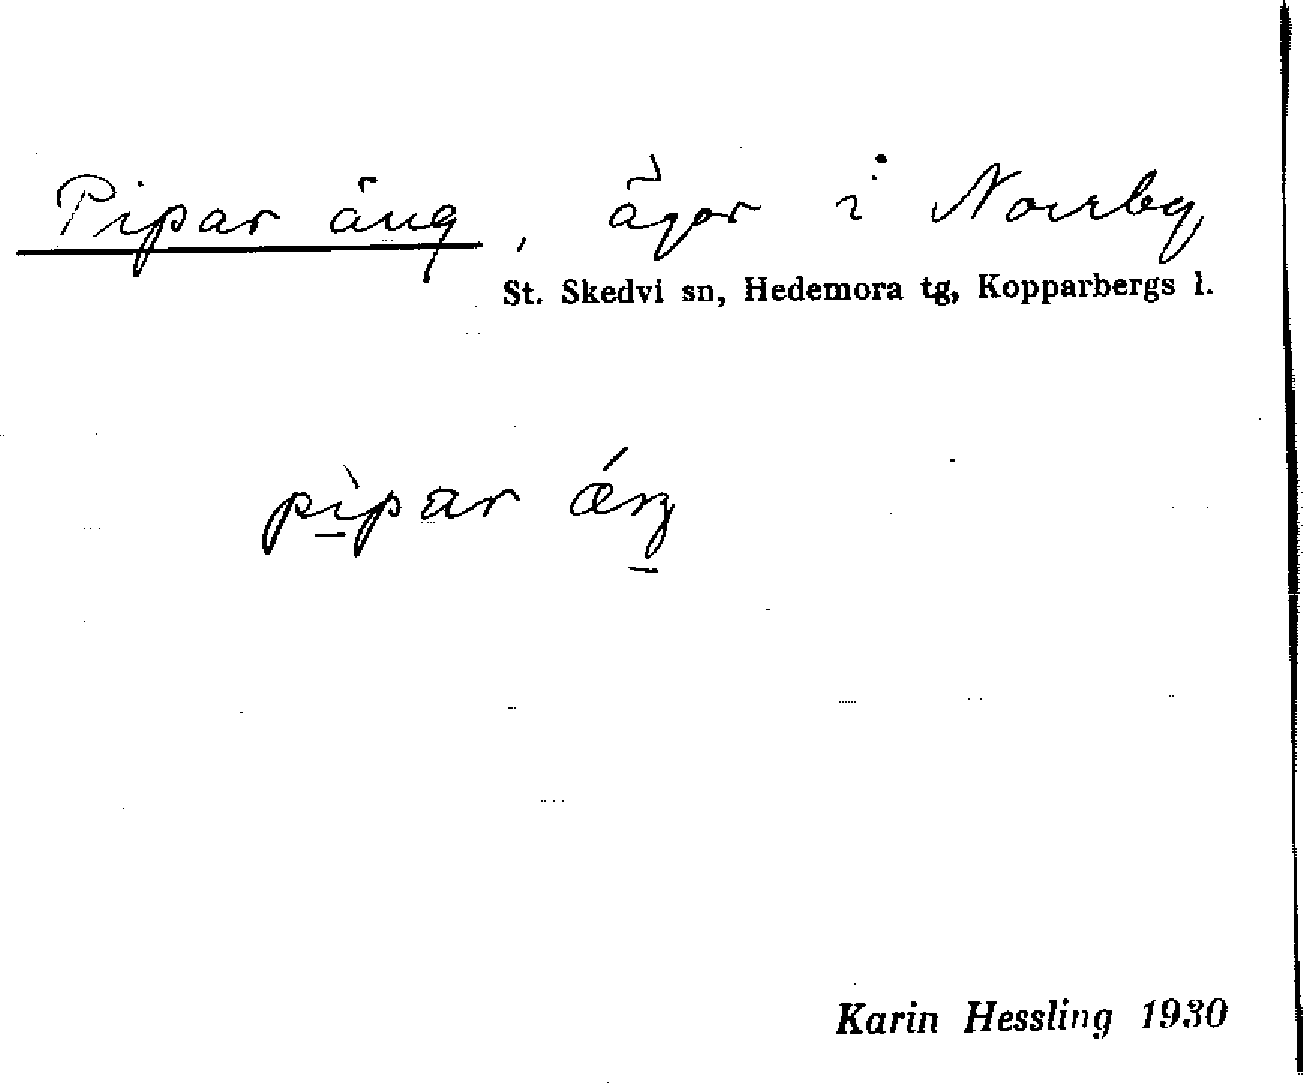 Pipar äng, ägor i Norrby
St. Skedvi sn, Hedemora tg, Kopparbergs l.
pìpar ǽŋ
Karin Hessling 1930